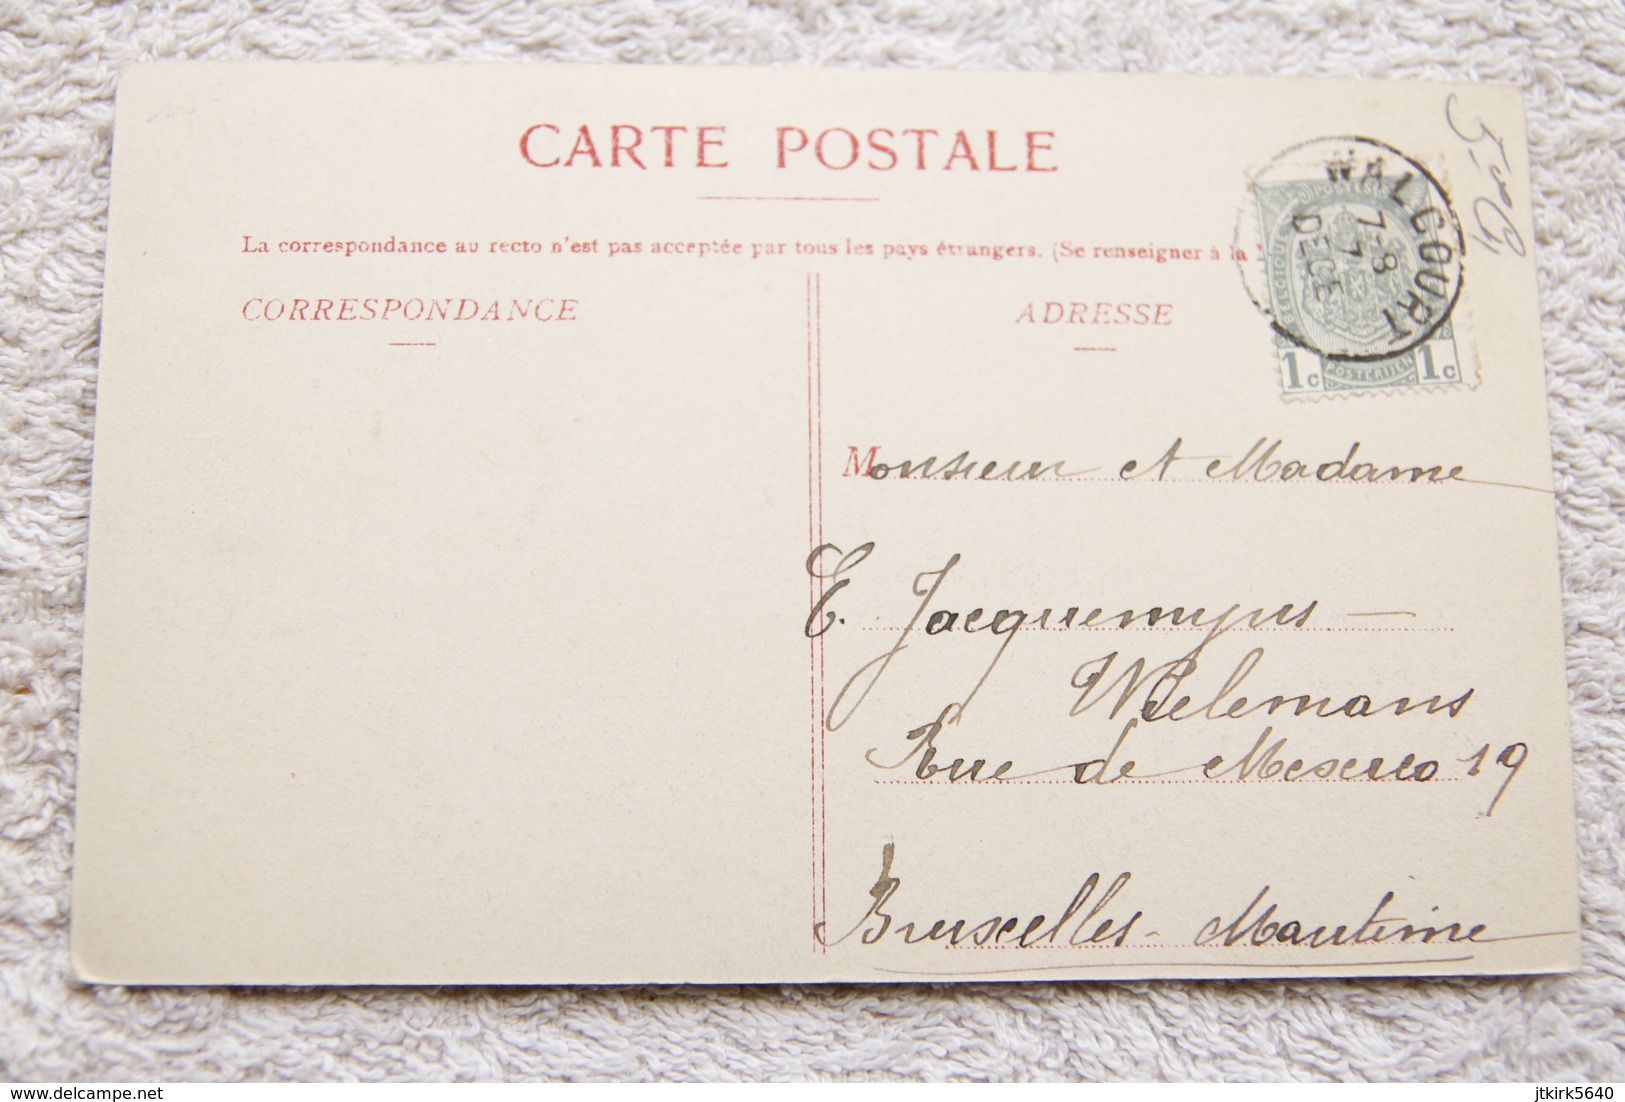 CARTE POSTALE
La correspondance au recto n'est pas acceptée par tous les pays étrangers. (Se renseigner à la
CORRESPONDANCE
ADRESSE
WALCOURT
7-8
7
DECE
POSTES
BELGIQUE
1c POSTERIJEN 1c
Monsieur et Madame
E. Jacquemyns –
Wielemans
Rue de Mexico 19
Bruxelles - Maritime
delcampe.net
jtkirk5640